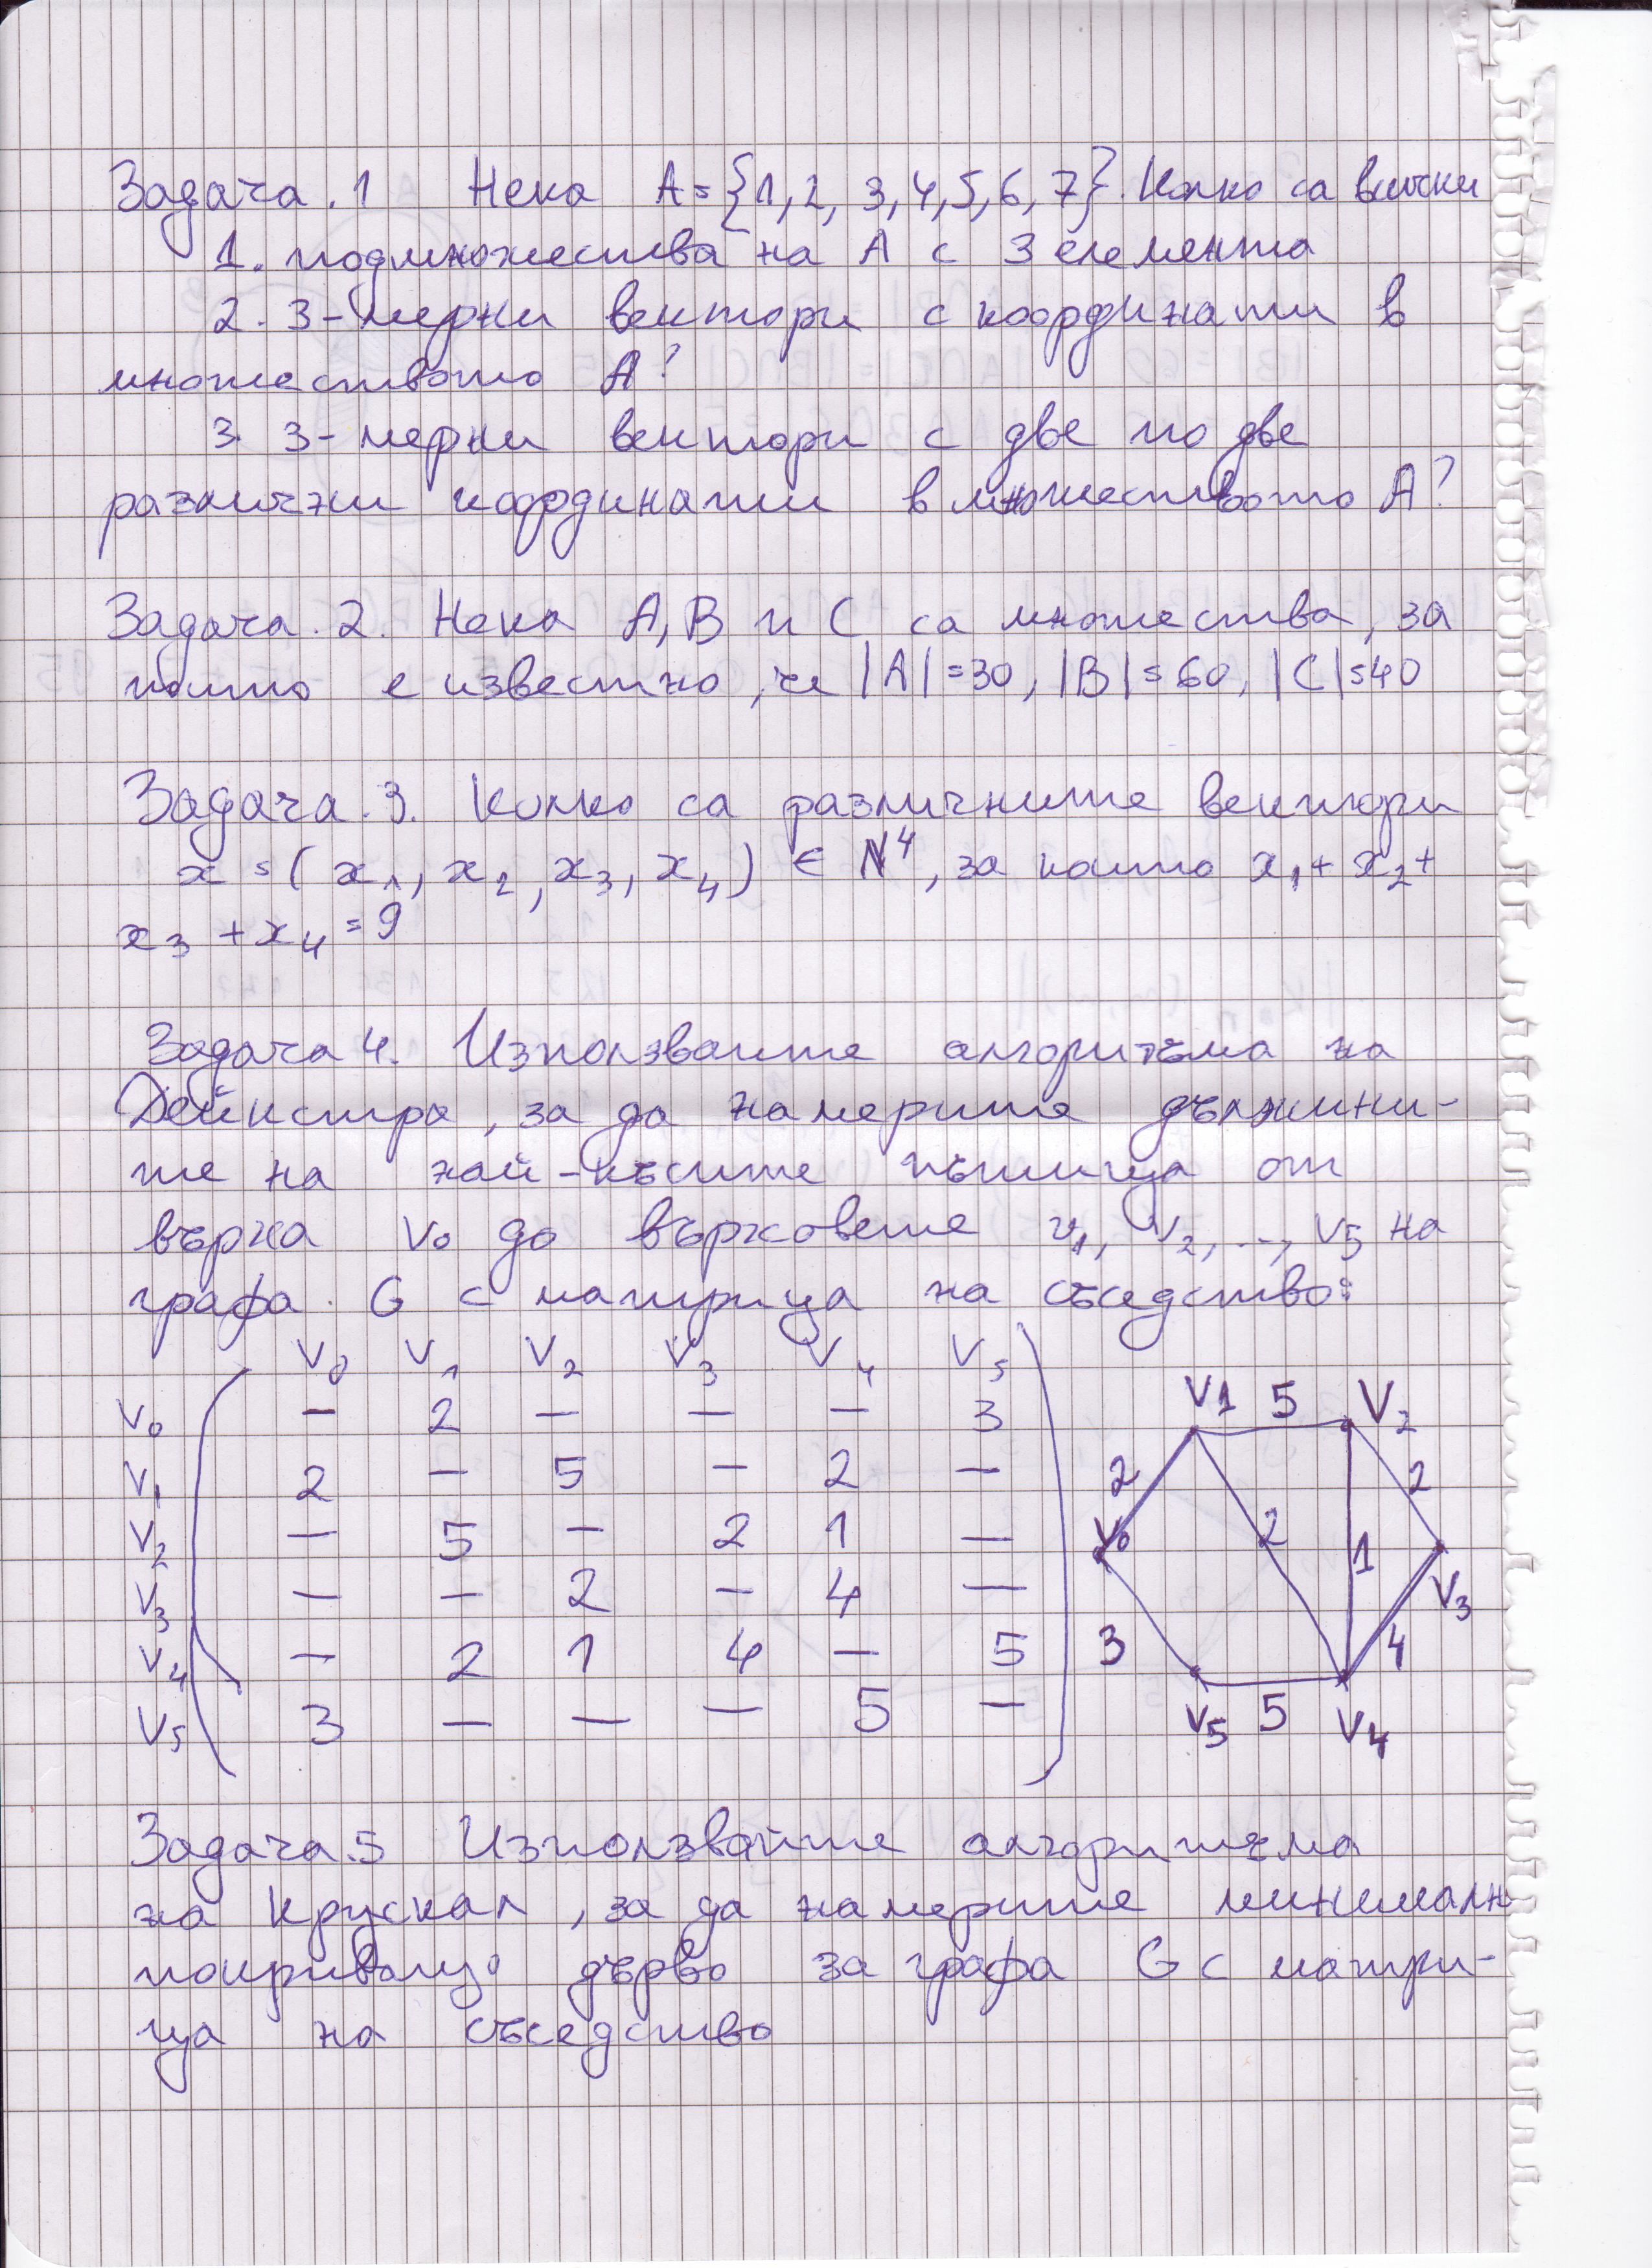 Задача.1 Нека A={1,2,3,4,5,6,7}. Колко са всички
1. подмножества на A с 3 елемента
2. 3-мерни вектори с координати в
множеството A?
3. 3-мерни вектори с две по две
различни координати в множеството A?
Задача.2. Нека A,B и C са множества, за
които е известно, че |A|=30, |B|=60, |C|=40
Задача.3. Колко са различните вектори
x=(x₁,x₂,x₃,x₄) ∈ N⁴, за които x₁+x₂+
x₃+x₄=9
Задача 4. Използвайте алгоритъма на
Дейкстра, за да намерите дължини-
те на най-късите пътища от
върха v₀ до върховете v₁, v₂, ..., v₅ на
графа G с матрица на съседство:
V₀ V₁ V₂ V₃ V₄ V₅
V₀ – 2 – – – 3
V₁ 2 – 5 – 2 –
V₂ – 5 – 2 1 –
V₃ – – 2 – 4 –
V₄ – 2 1 4 – 5
V₅ 3 – – – 5 –
V1 5 V₂
2 2
V₀ 2 1
V₃
3 4
V₅ 5 V₄
Задача.5 Използвайте алгоритъма
на Крускал, за да намерите минимално
покриващо дърво за графа G с матри-
ца на съседство